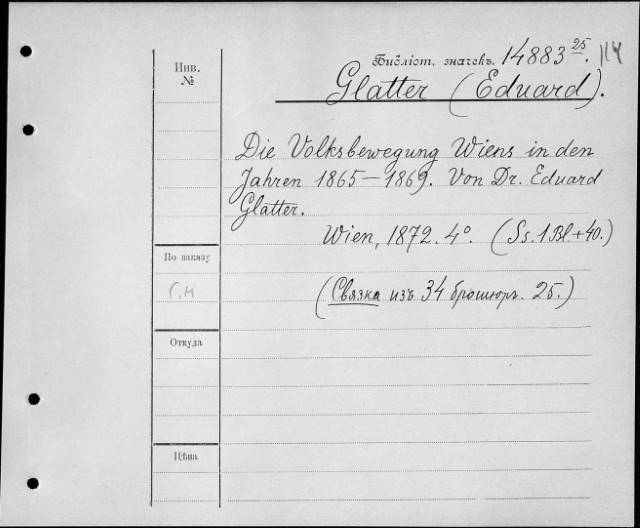 Библіот. значекъ. 14883 25. 114
Инв.
№
Glatter (Eduard).
Die Volksbewegung Wiens in den
Jahren 1865—1869. Von Dr. Eduard
Glatter.
Wien, 1872. 4º. (Ss. 1 Bl. + 40.)
По заказу
Г.М
(Связка изъ 34 брошюръ. 25.)
Откуда
Цѣна